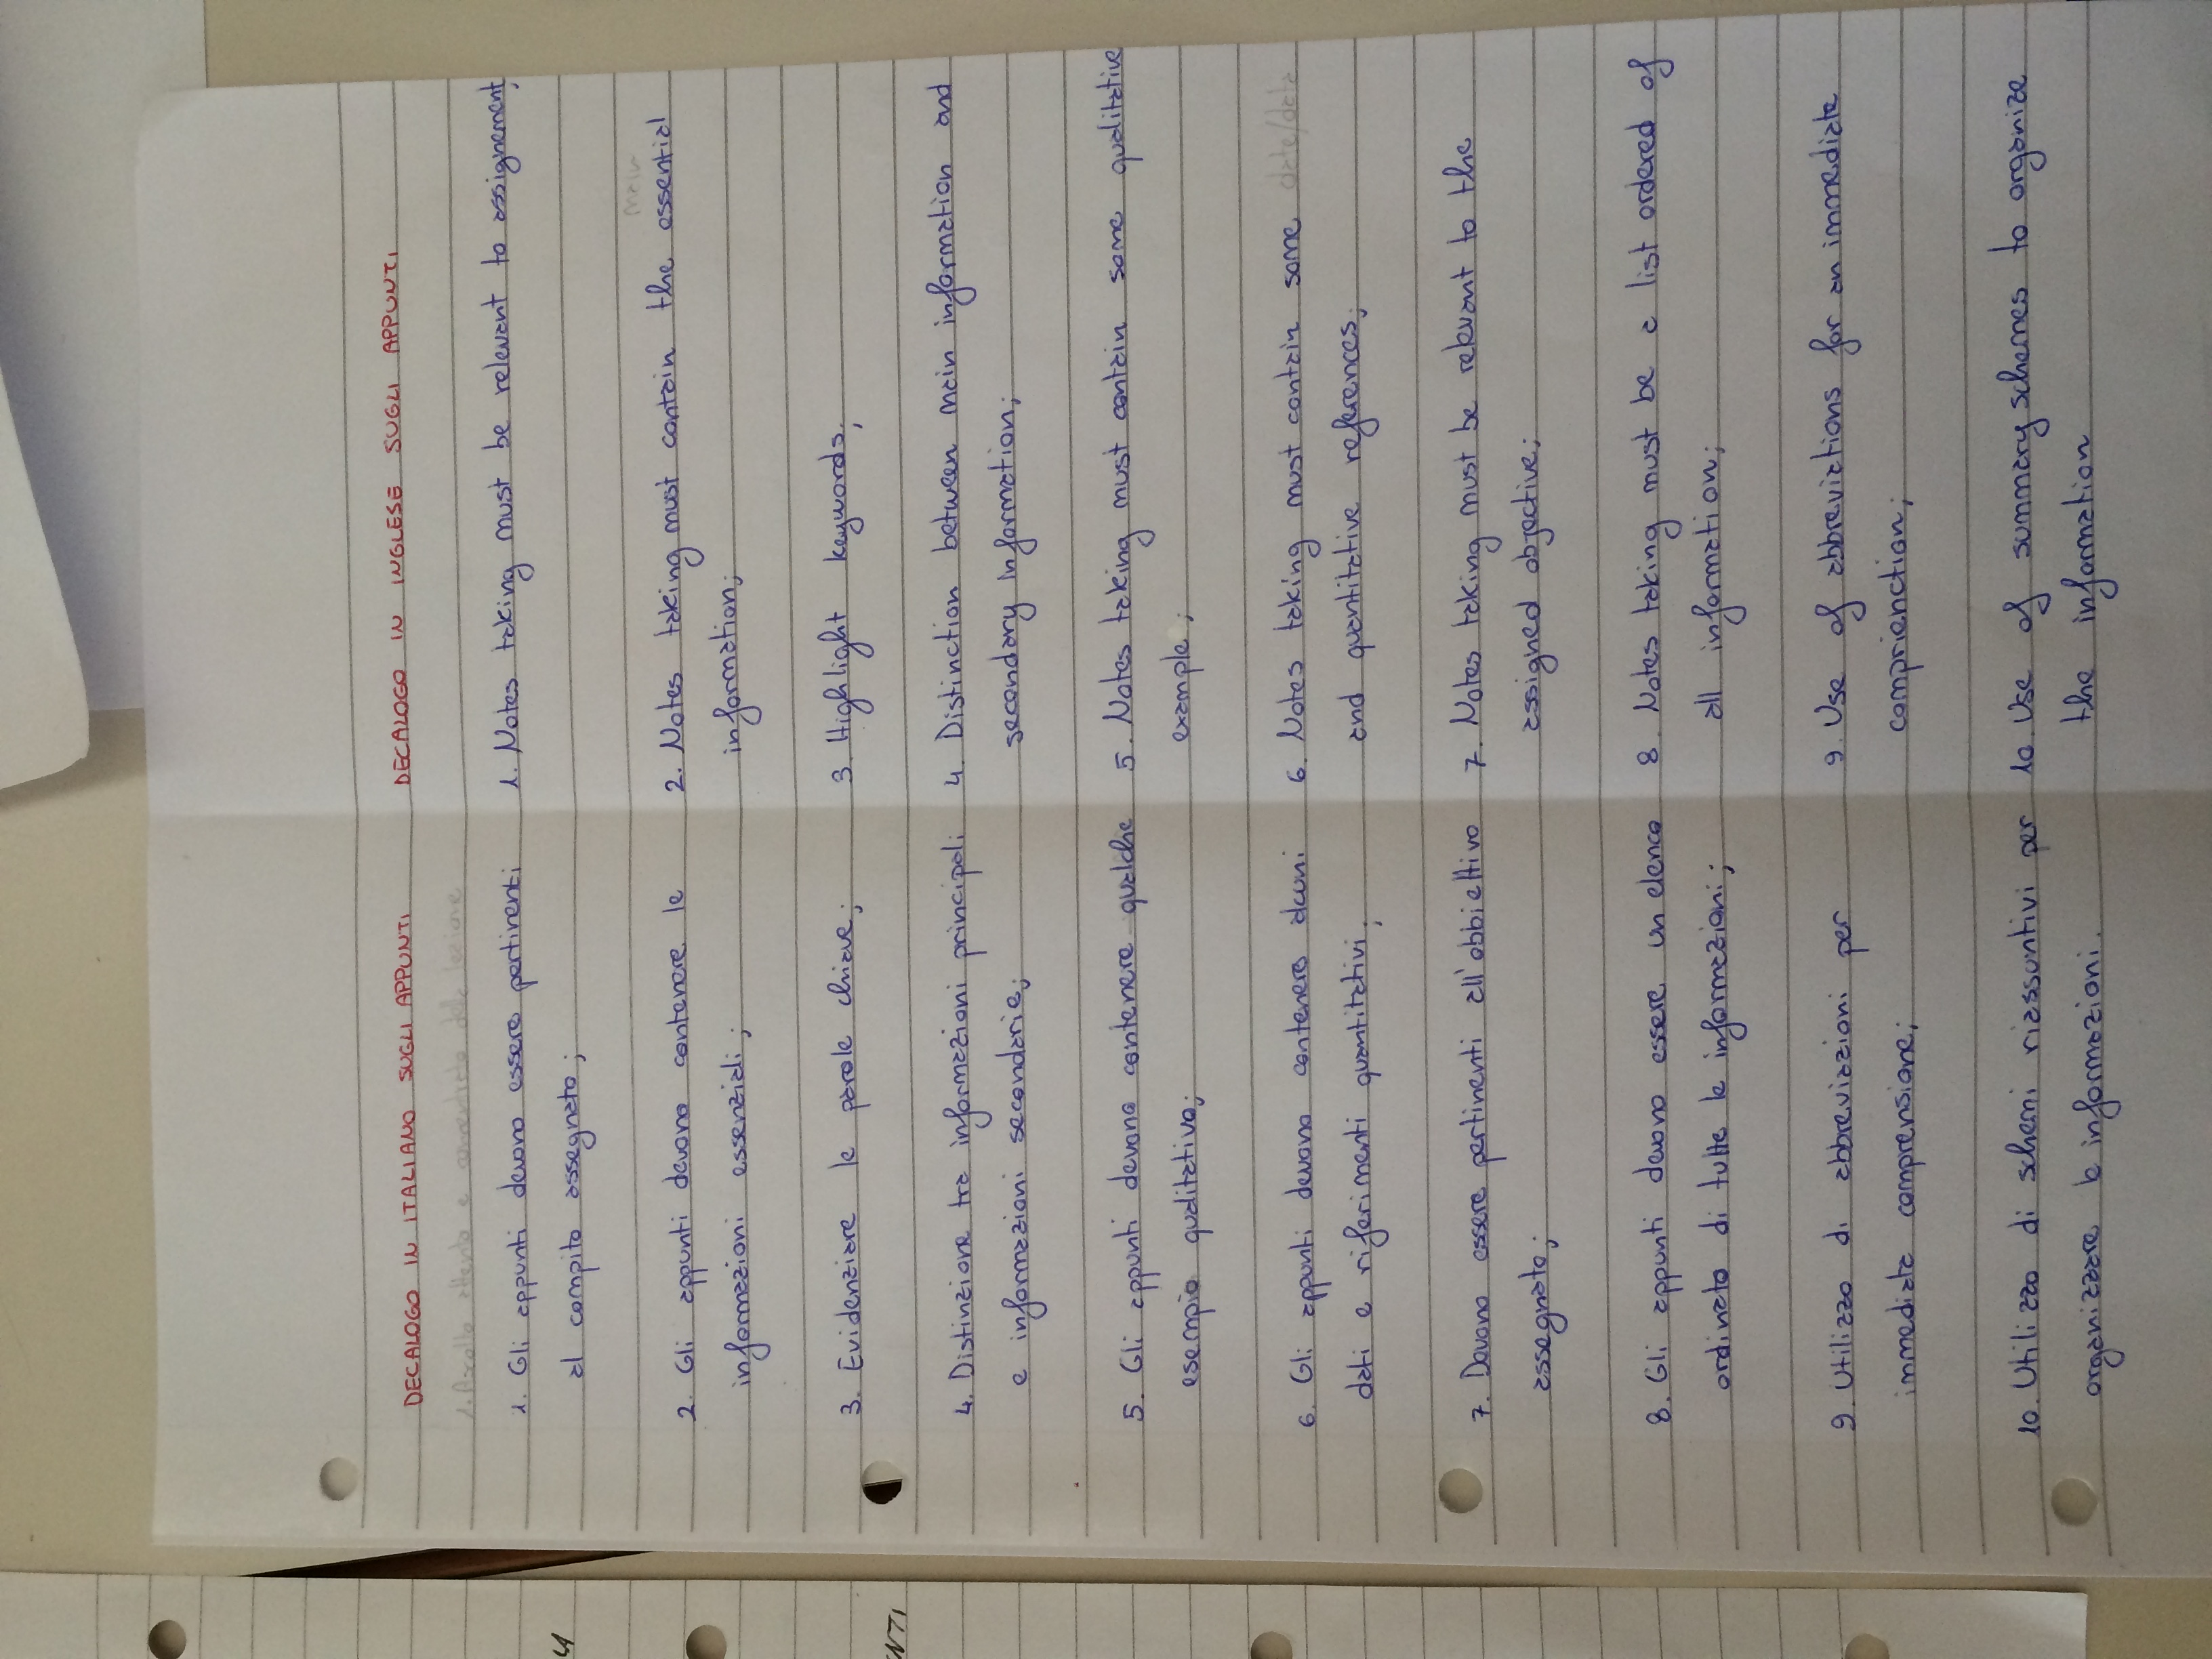 DECALOGO IN ITALIANO SUGLI APPUNTI
1. Ascolto attento e della lezione
1. Gli appunti devono essere pertinenti
al compito assegnato;
2. Gli appunti devono contenere le
informazioni essenziali;
3. Evidenziare le parole chiave;
4. Distinzione tra informazioni principali
e informazioni secondarie;
5. Gli appunti devono contenere qualche
esempio qualitativo;
6. Gli appunti devono contenere alcuni
dati e riferimenti quantitativi;
7. Devono essere pertinenti all'obbiettivo
assegnato;
8. Gli appunti devono essere un elenco
ordinato di tutte le informazioni;
9. Utilizzo di abbreviazioni per
immediata comprensione;
10. Utilizzo di schemi riassuntivi per
organizzare le informazioni.
DECALOGO IN INGLESE SUGLI APPUNTI
1. Notes taking must be relevant to assignement;
main
2. Notes taking must contain the essential
information;
3. Highlight keywords;
4. Distinction between main information and
secondary information;
5. Notes taking must contain some qualitative
example;
6. Notes taking must contain some date/data
and quantitative references;
7. Notes taking must be relevant to the
assigned objective;
8. Notes taking must be a list ordered of
all information;
9. Use of abbreviations for an immediate
comprienction;
10. Use of summary schemes to organize
the information